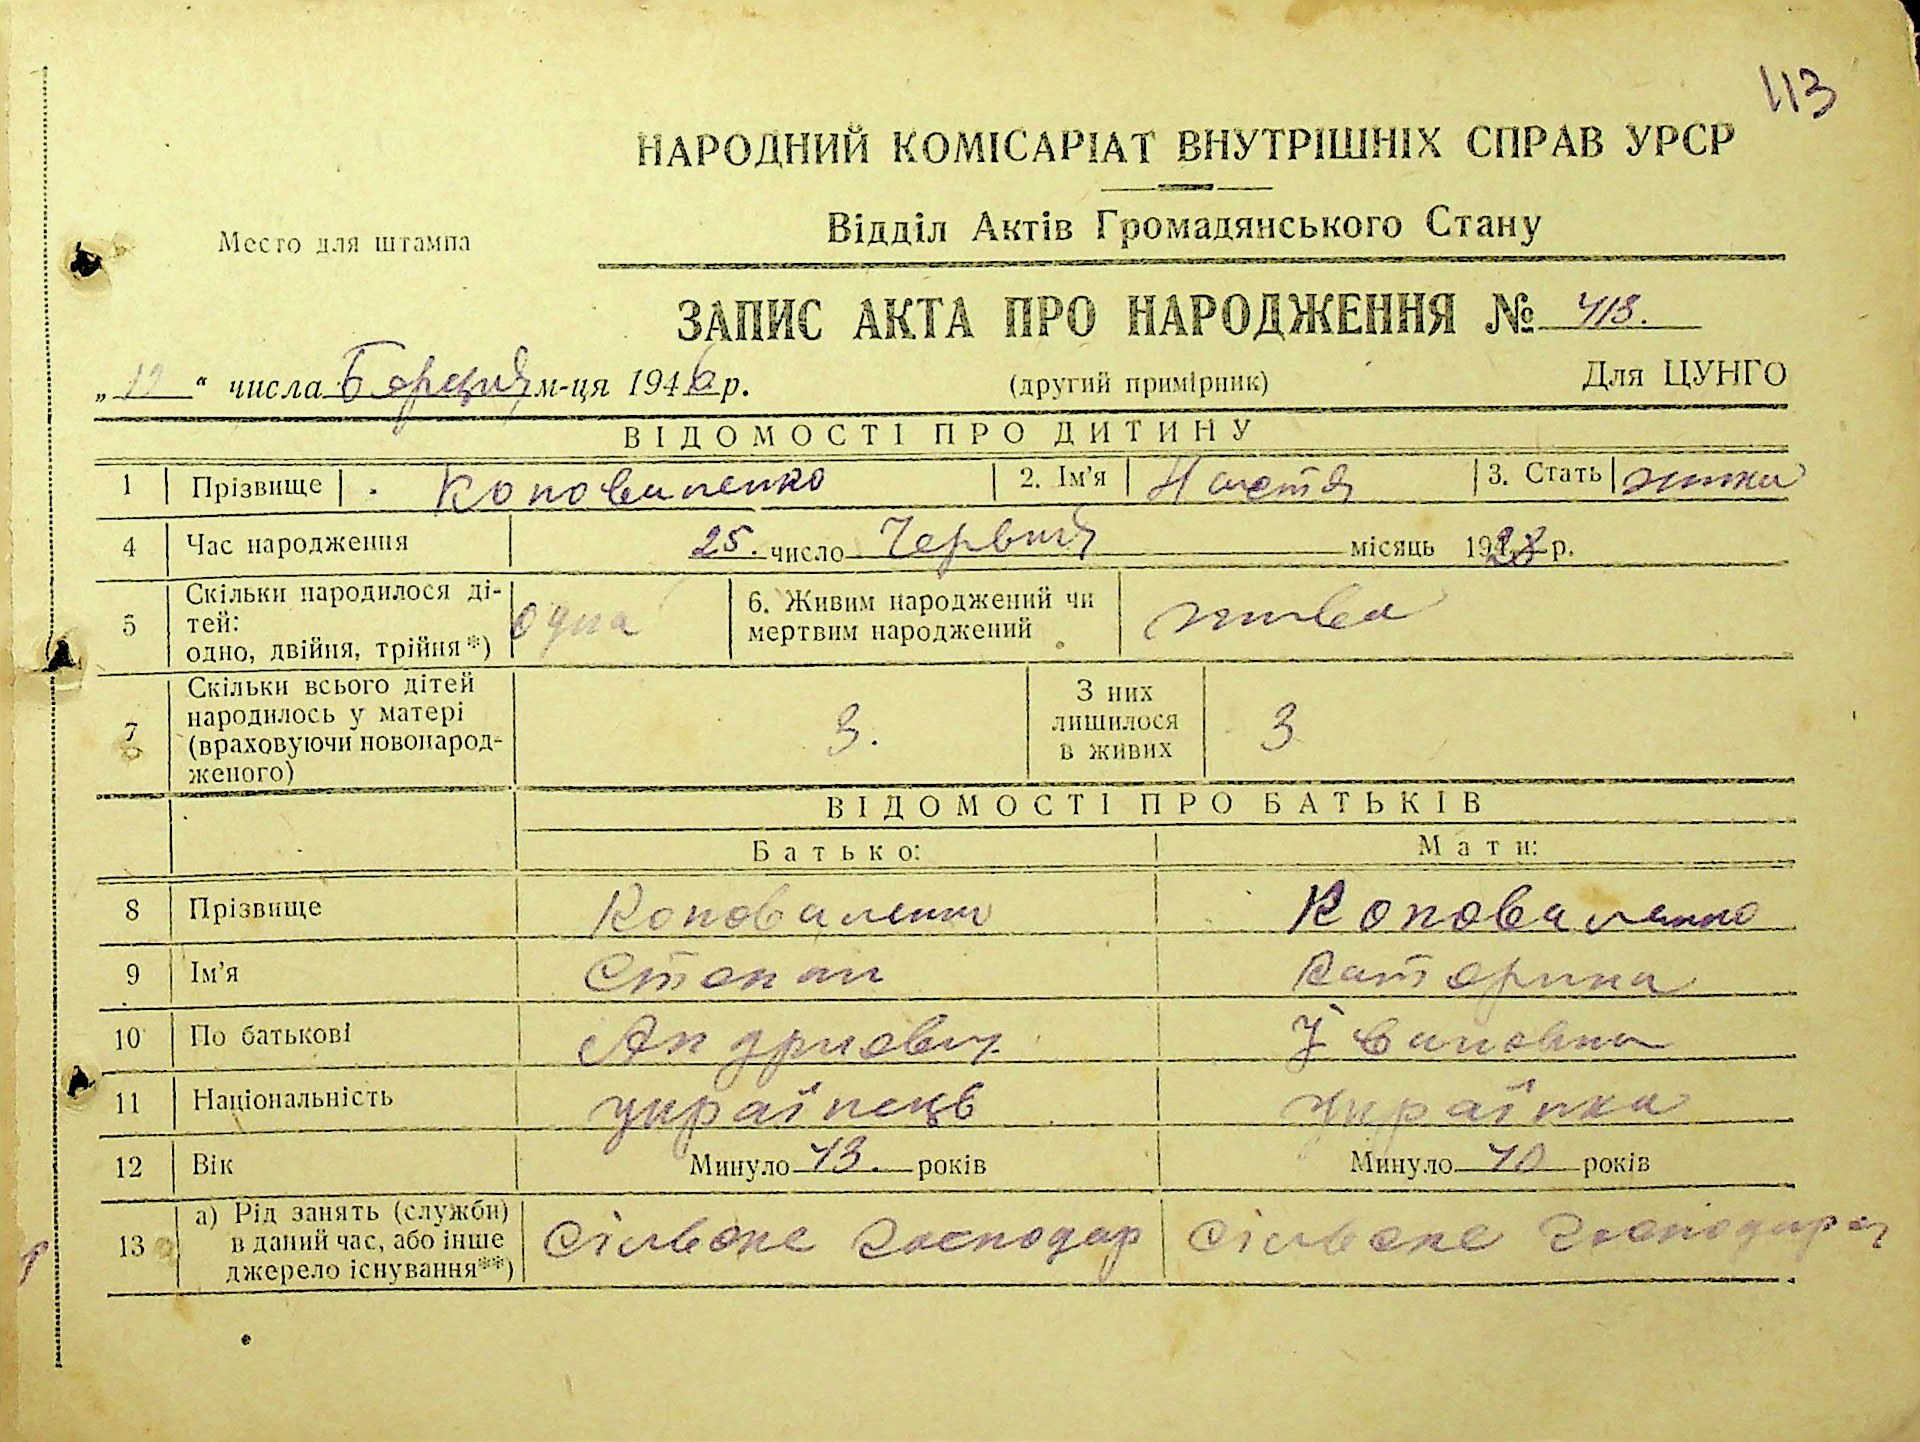 113
НАРОДНИЙ КОМІСАРІАТ ВНУТРІШНІХ СПРАВ УРСР
Відділ Актів Громадянського Стану
Место для штампа
ЗАПИС АКТА ПРО НАРОДЖЕННЯ № 413.
„ “ числа Березня м-ця 1946 р. (другий примірник) Для ЦУНГО
ВІДОМОСТІ ПРО ДИТИНУ
1 Прізвище Коноваленко 2. Ім’я Настя 3. Стать жінка
4 Час народження 25. число Червня місяць 1928 р.
5 Скільки народилося ді-
тей:
одно, двійня, трійня*) одна 6. Живим народжений чи
мертвим народжений жива
7 Скільки всього дітей
народилось у матері
(враховуючи новонарод-
женого) 3. З них
лишилося
в живих 3
ВІДОМОСТІ ПРО БАТЬКІВ
Батько: Мати:
8 Прізвище Коноваленко Коноваленко
9 Ім’я Степан Катерина
10 По батькові Андриевич Івановна
11 Національність українець українка
12 Вік Минуло 43. років Минуло 40 років
13 а) Рід занять (служби)
в даний час, або інше
джерело існування**) Сільске господар Сільске господарка